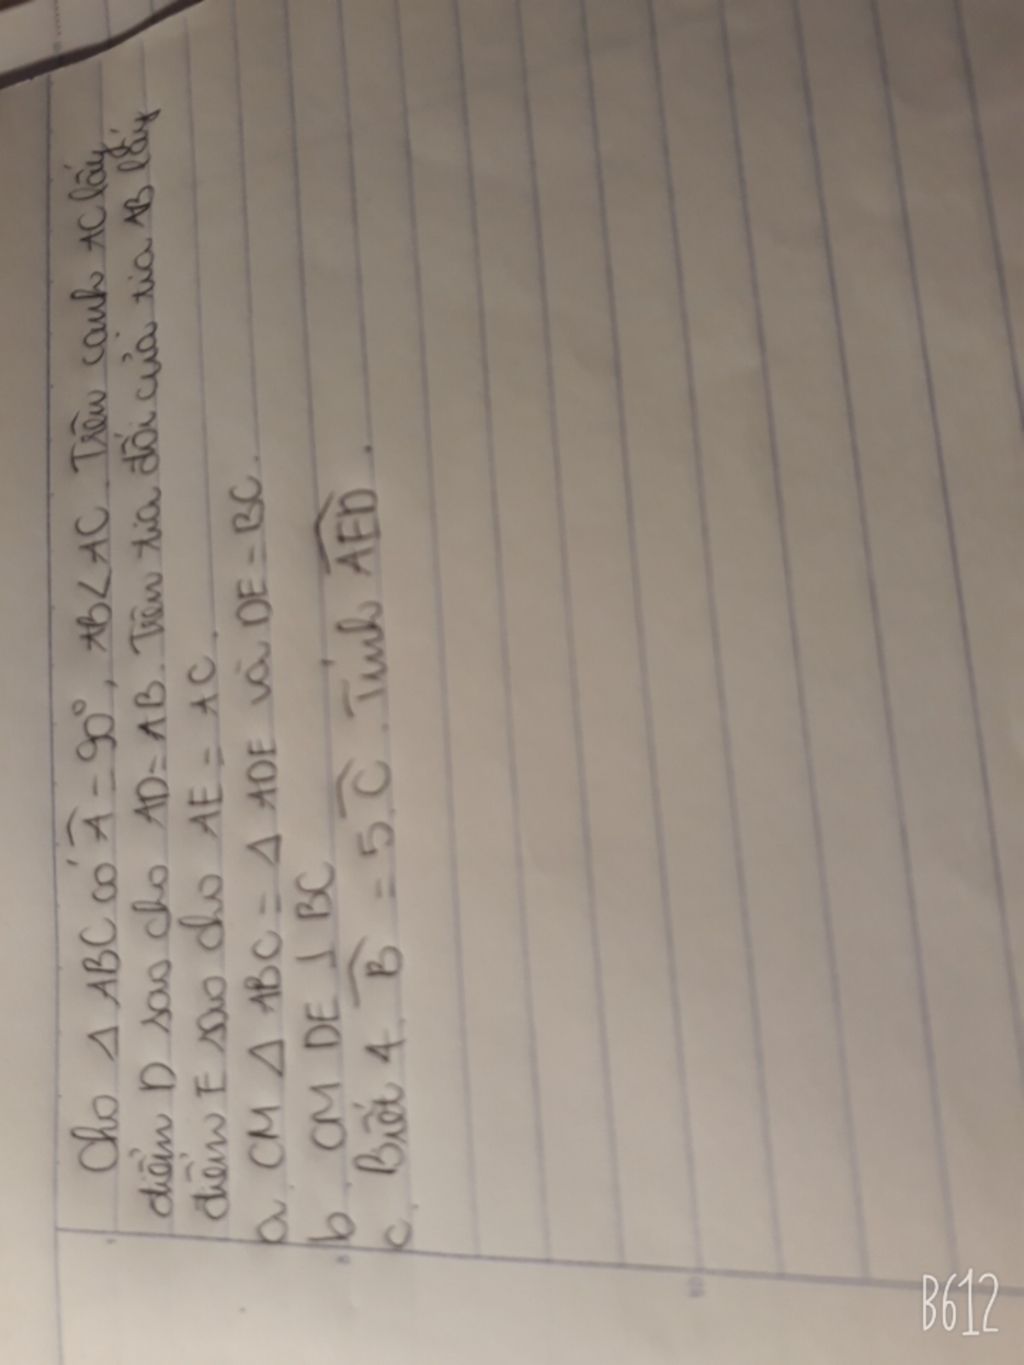 Cho Δ ABC có Â = 90°, AB < AC. Trên cạnh AC lấy
điểm D sao cho AD = AB. Trên tia đối của tia AB lấy
điểm E sao cho AE = AC.
a. CM Δ ABC = Δ ADE và DE = BC.
b. CM DE ⊥ BC
c. Biết 4. B̂ = 5. Ĉ. Tính AÊD.
B612